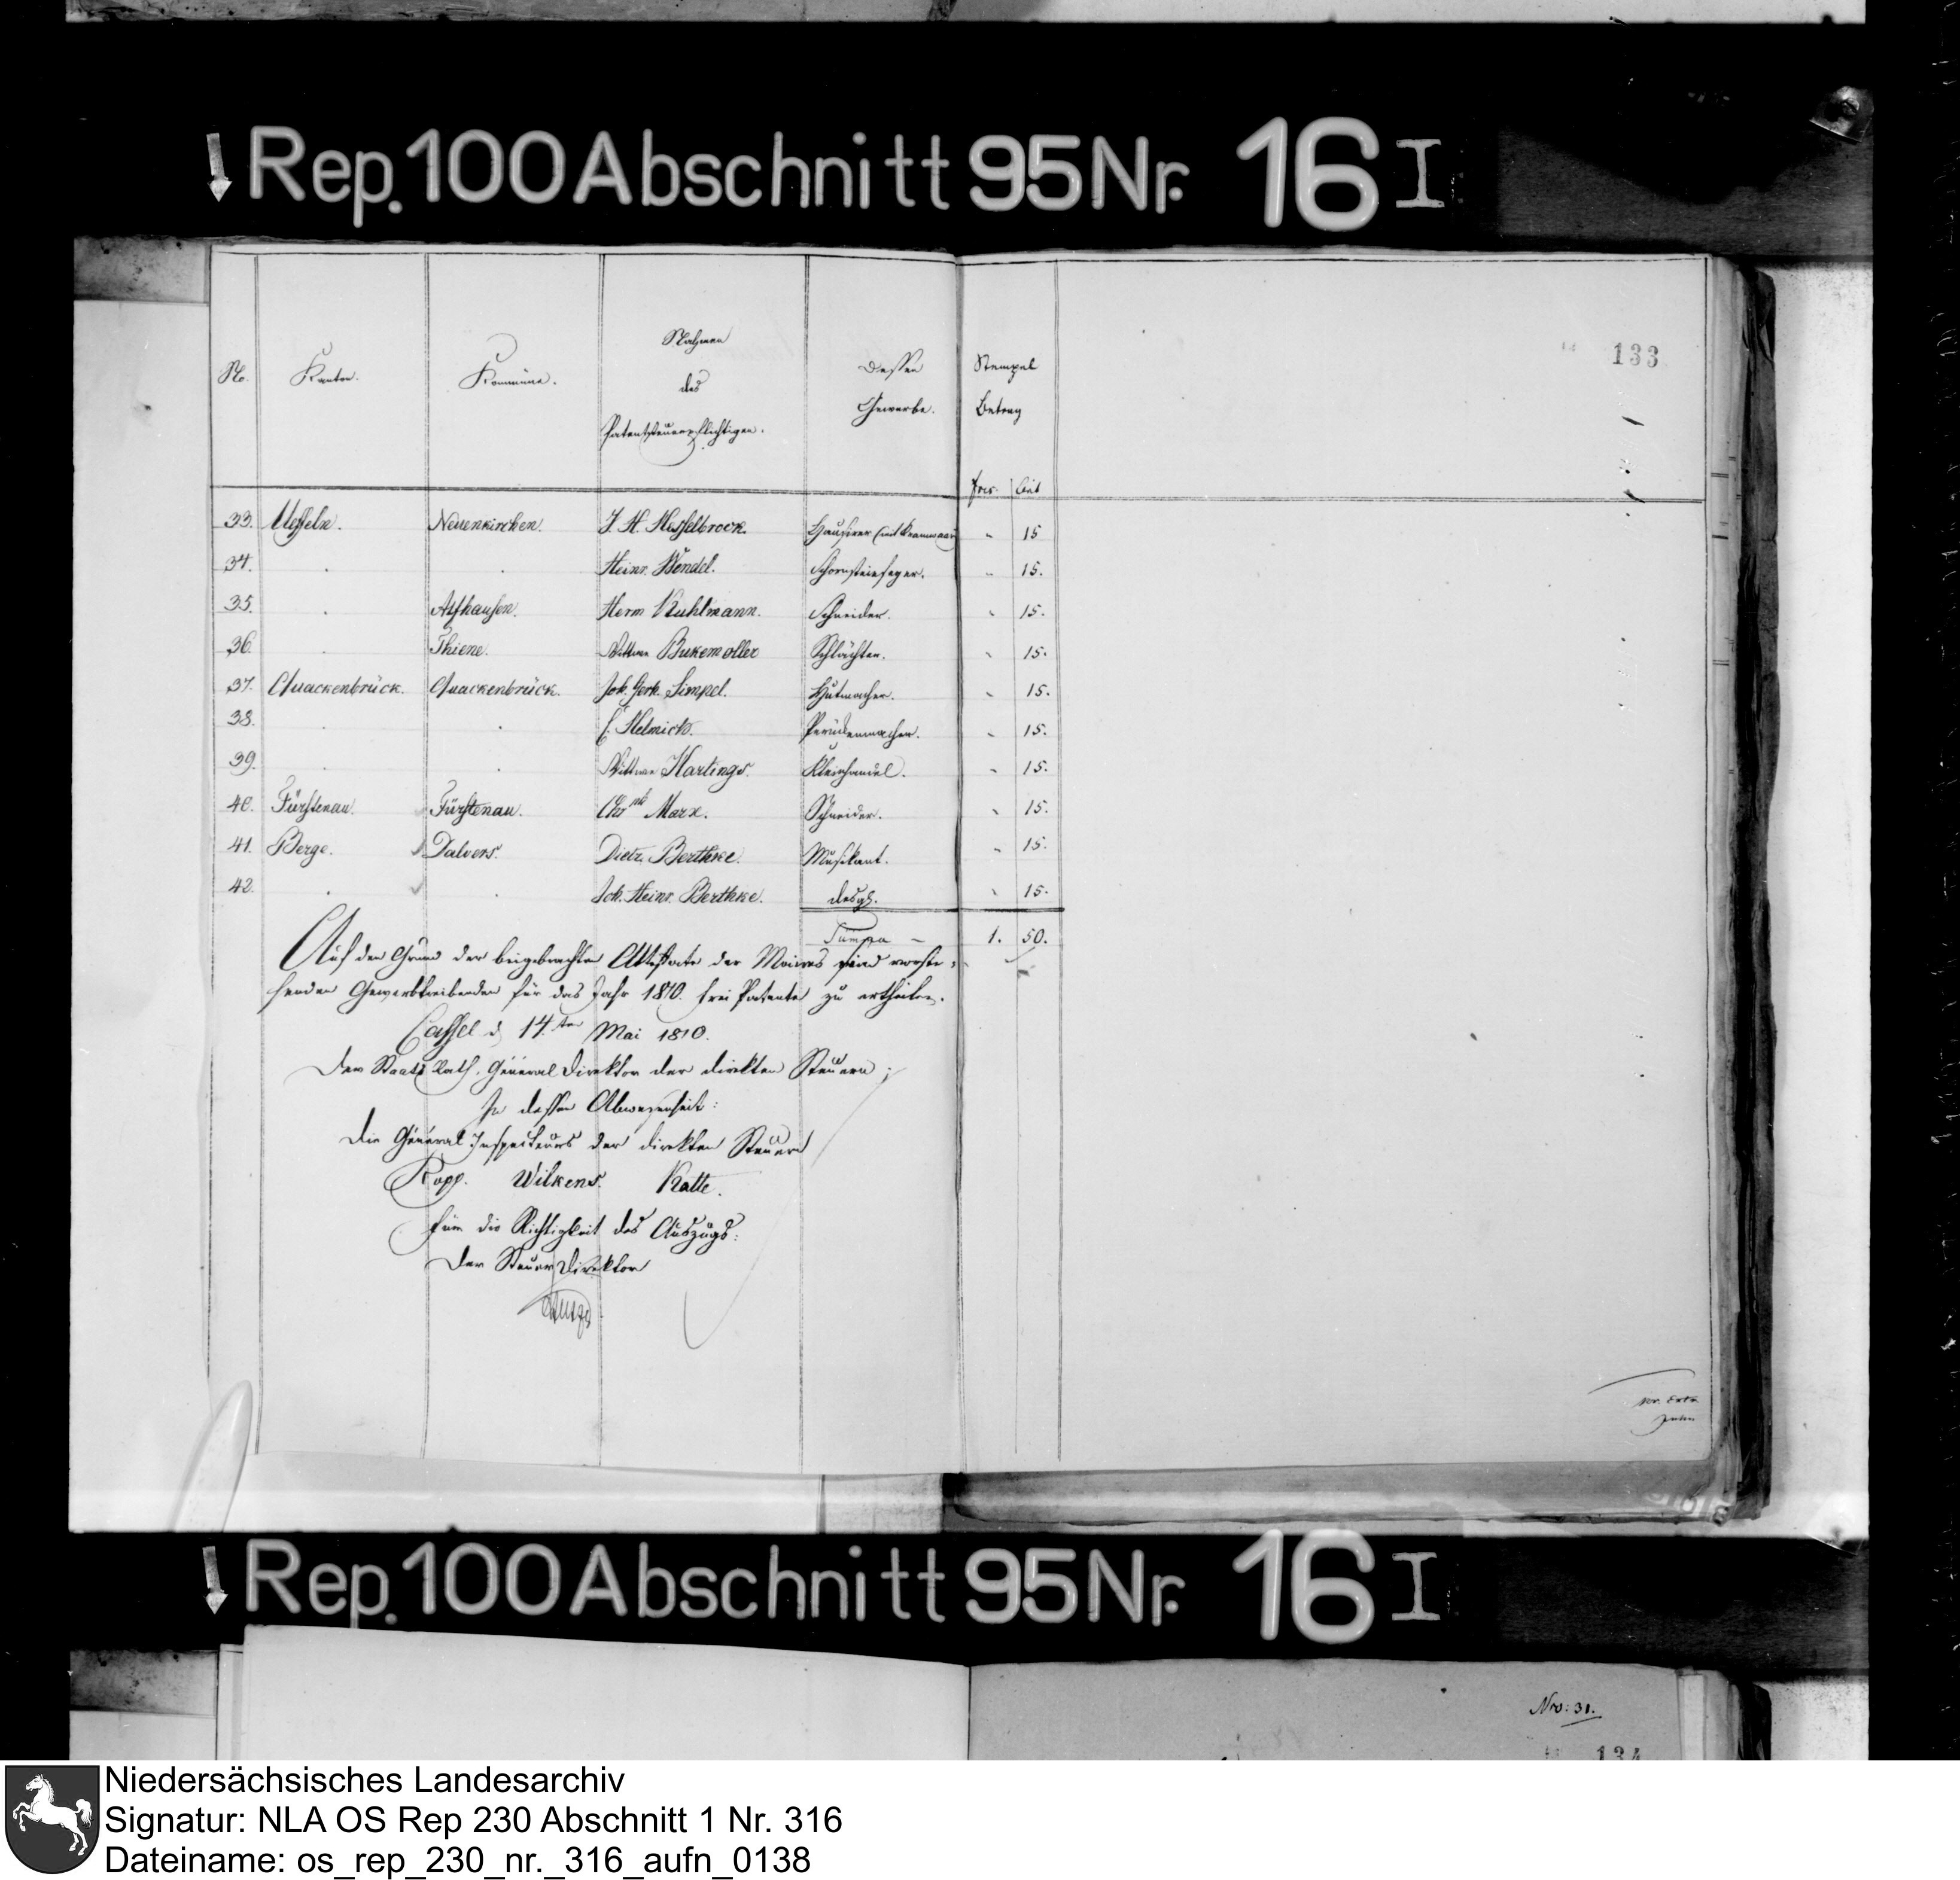 Rep. 100 Abschnitt 95 Nr. 16 I
133
No. Kanton. Kommüne. Nahmen des Patentsteuerpflichtigen. Dessen Gewerbe. Stempel Betrag
frcs. Cent
33. Ueffeln. Neuenkirchen. J. H. Hesselbrock. Hausirer (mit Kramwaar) - 15
34. . . Heinr. Wendel. Schornsteinfeger. - 15.
35. . Herm Kuhlmann. Schneider. - 15.
36. . Thiene. Wittwe Bukemoller Schlächter. - 15.
37. Quackenbrück. Quackenbrück. Joh. Gerh. Simpel. Hutmacher. - 15.
38. . . Helmich. Perückenmacher. - 15.
39. . . Wittwe Hartinge. Kleinhandel. - 15.
40. Fürstenau. Fürstenau. Marx. Schneider. - 15.
41. Berge. Dalvers. Dietr. Berthke. Musikant. - 15.
42. . . Joh. Heinr. Berthke. desgl. - 15.
Summa - 1. 50.
Auf den Grund der beigebrachten Attestate der Maires sind vorste-
henden Gewerbtreibenden für das Jahr 1810. frei Patente zu ertheilen.
Cassel d. 14.ten Mai 1810.
Der Staats Rath, General Direktor der direkten Steuern;
In dessen Abwesenheit:
Die Général Inspecteurs der direkten Steuern
Kopp. Wilkens. Katte.
Für die Richtigkeit des Auszugs:
Der Steuer Direktor
Rep. 100 Abschnitt 95 Nr. 16 I
Nro: 31.
134
Niedersächsisches Landesarchiv
Signatur: NLA OS Rep 230 Abschnitt 1 Nr. 316
Dateiname: os_rep_230_nr._316_aufn_0138